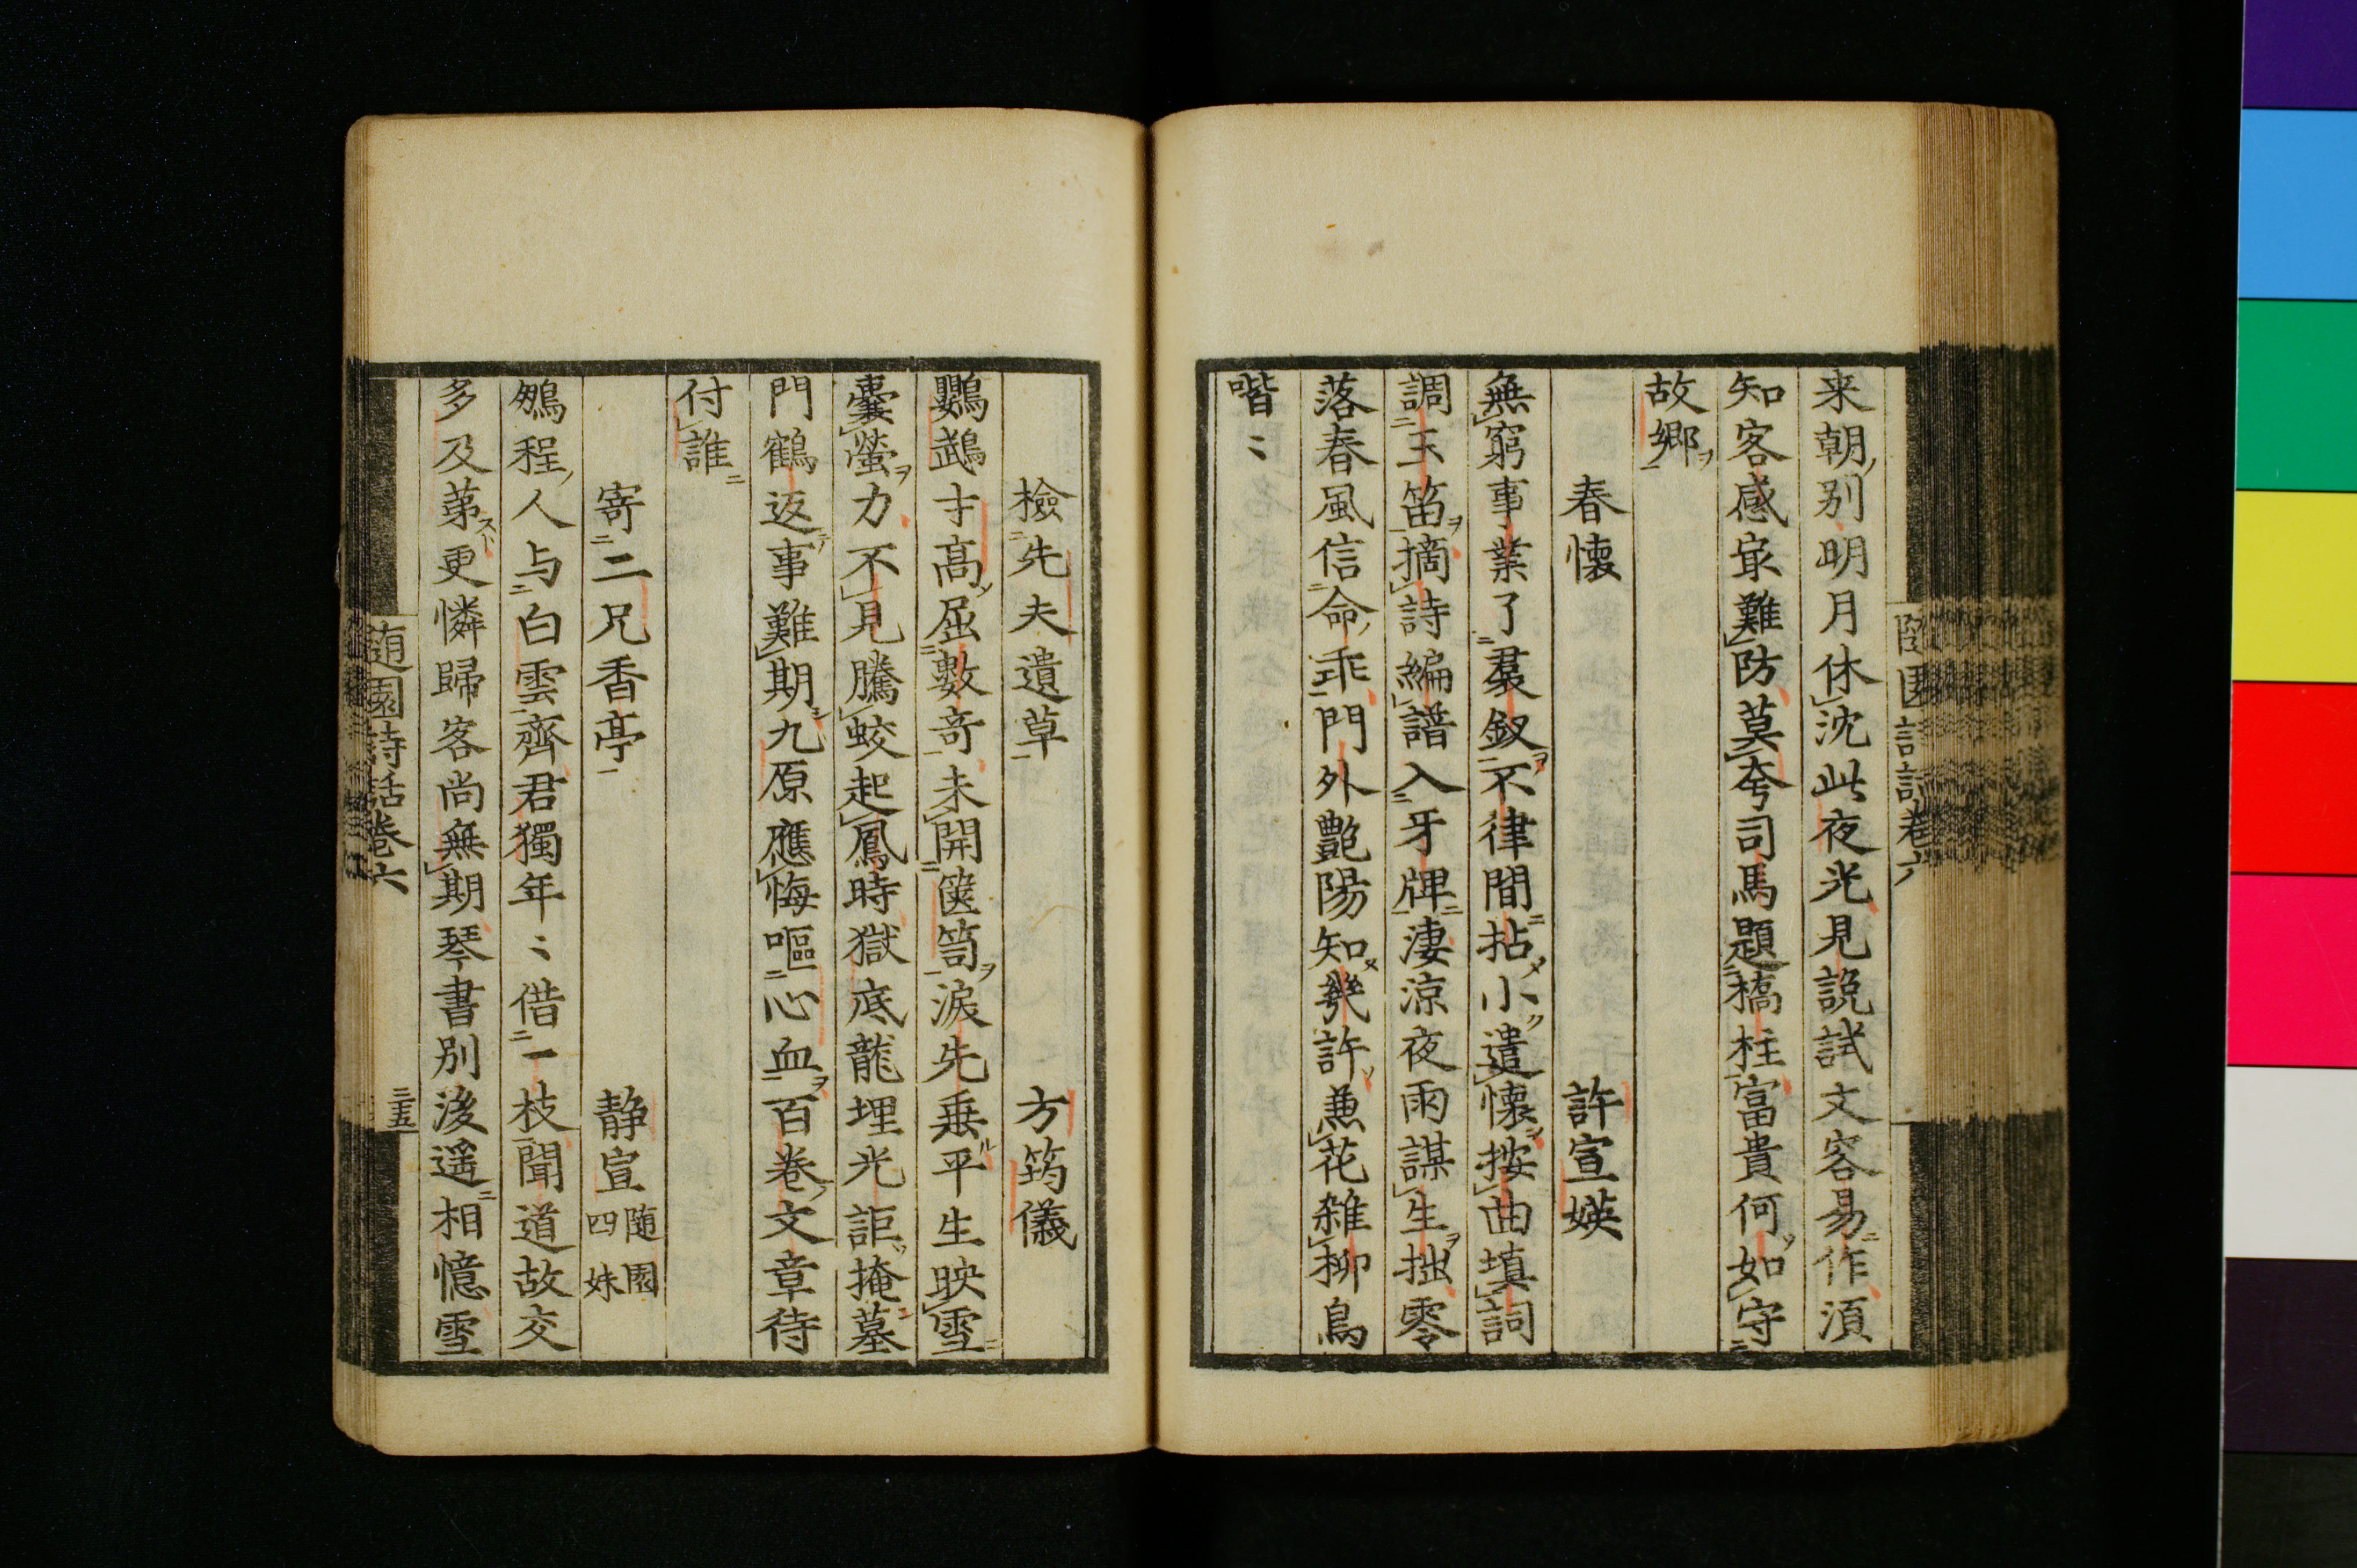 来朝別明月休沈此夜光見説試文容易作須
知客感㝡難防莫夸司馬題橋柱富貴何如守
故郷
春懐 許宣媖
無窮事業了裠釵不律間拈小遣懐按曲填詞
調玉笛摘詩編譜入牙牌淒涼夜雨謀生拙零
落春風信命乖門外艶陽知幾許兼花雑柳鳥
喈〻
檢先夫遺草 方筠儀
鸚鵡才高屈數竒未開篋笥淚先垂平生映雪
囊螢力不見騰蛟起鳳時獄底龍埋光詎掩墓
門鶴返事難期九原應悔嘔心血百巻文章待
付誰
寄二兄香亭 静宣 随園四妹
鵷程人与白雲齊君獨年〻借一枝聞道故交
多及苐更憐歸客尚無期琴書別後遥相憶雪
随園詩話巻六
三五